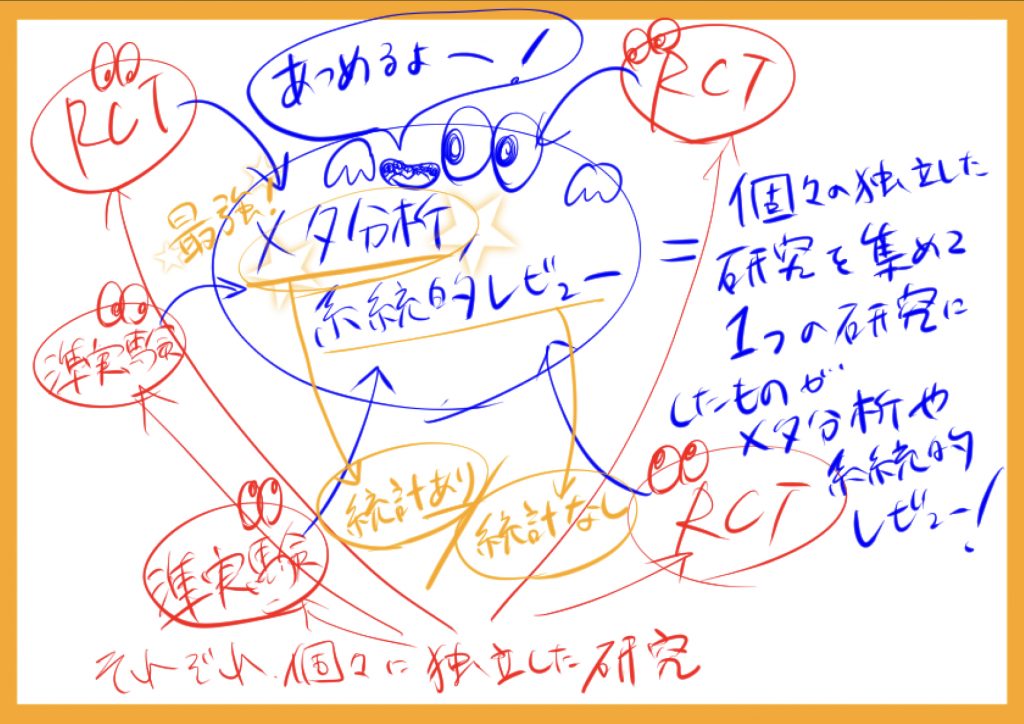 あつめるよー!
RCT
RCT
最強!
メタ分析
系統的レビュー
=
個々の独立した
研究を集めて
1つの研究に
したものが
メタ分析や
系統的
レビュー!
準実験
統計あり/
統計なし
RCT
準実験
それぞれ個々に独立した研究